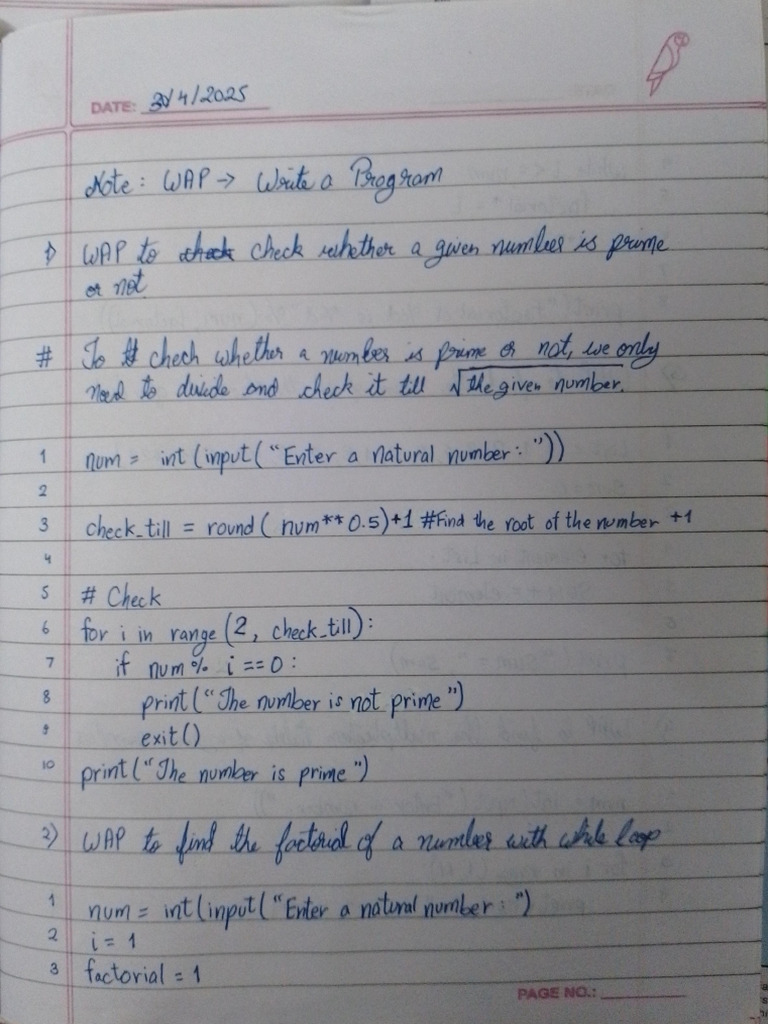 DATE: 30/4/2025
Note: WAP → Write a Program
1) WAP to check check whether a given number is prime
or not
# To chech whether a number is prime or not, we only
need to divide and check it till √the given number.
1 num = int (input("Enter a natural number: "))
2
3 check_till = round( num**0.5)+1 #Find the root of the number +1
4
5 # Check
6 for i in range (2, check_till):
7 if num % i == 0:
8 print("The number is not prime")
9 exit()
10 print("The number is prime")
2) WAP to find the factorial of a number with while loop
1 num = int(input("Enter a natural number: ")
2 i = 1
3 factorial = 1
PAGE NO.: